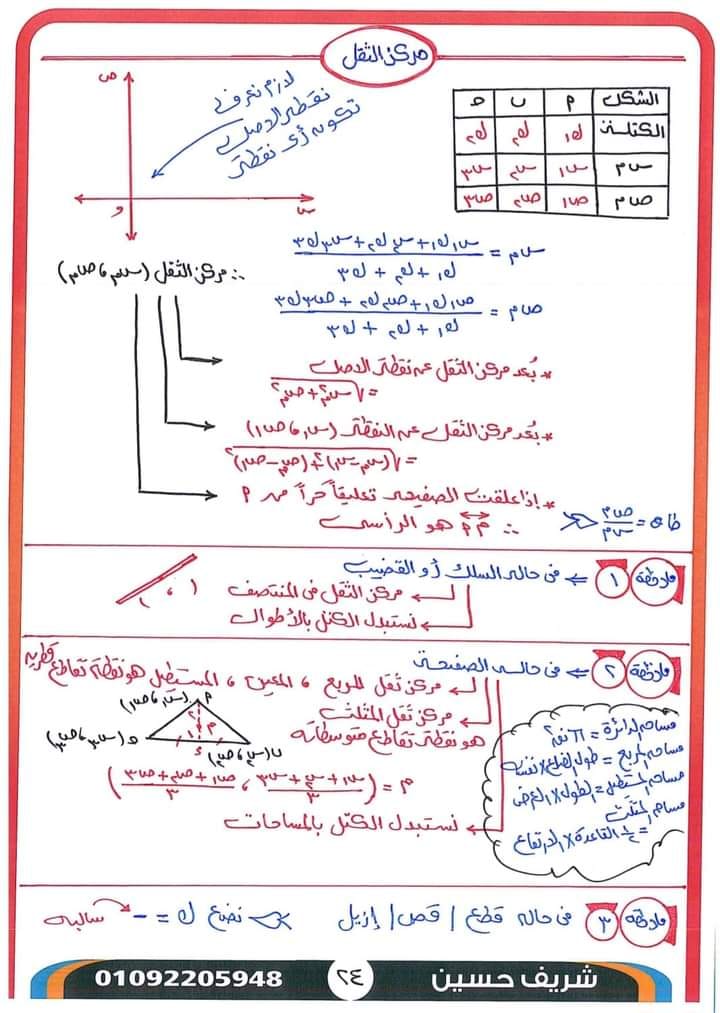 مركز الثقل
الشكل م ب ح
الكتلة ك١ ك٢ ك٣
س م س١ س٢ س٣
ص م ص١ ص٢ ص٣
لازم نعرف
نقطة الأصل
تكون أي نقطة
ص
س
و
س م = (س١ ك١ + س٢ ك٢ + س٣ ك٣) / (ك١ + ك٢ + ك٣)
∴ مركز الثقل (س م ، ص م)
ص م = (ص١ ك١ + ص٢ ك٢ + ص٣ ك٣) / (ك١ + ك٢ + ك٣)
* بُعد مركز الثقل عن نقطة الأصل
= √(س م² + ص م²)
* بُعد مركز الثقل عن النقطة (س١ ، ص١)
= √((س م - س١)² + (ص م - ص١)²)
* إذا علقت الصفيحة تعليقاً حراً من م
∴ م م هو الرأسى
طا هـ = ص م / س م
ملاحظة ١ ⇐ فى حالة السلك أو القضيب
مركز الثقل فى المنتصف
نستبدل الكتل بالأطوال
ملاحظة ٢ ⇐ فى حالة الصفيحة
مركز ثقل المربع ، المعين ، المستطيل هو نقطة تقاطع قطريه
مركز ثقل المثلث
هو نقطة تقاطع متوسطاته
م (س١ ، ص١)
ب (س٢ ، ص٢)
ح (س٣ ، ص٣)
م
٢
١
ء
م = ((س١ + س٢ + س٣) / ٣ ، (ص١ + ص٢ + ص٣) / ٣)
نستبدل الكتل بالمساحات
مساحة الدائرة = π نق²
مساحة المربع = طول الضلع × نفسه
مساحة المستطيل = الطول × العرض
مساحة المثلث
= ½ القاعدة × الارتفاع
ملاحظة ٣ فى حالة قطع / قص / إزيل نضع ك = - سالبه
شريف حسين ٢٤ 01092205948